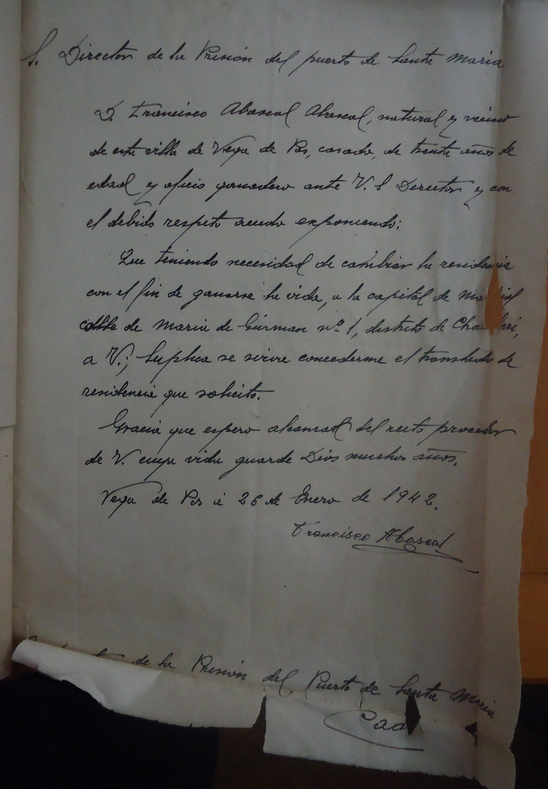 S. Director de la Prisión del puerto de Santa Maria
D. Francisco Abascal Abascal, natural y vecino
de esta villa de Vega de Pas, casado, de treinta años de
edad y oficio ganadero ante V. S. Director y con
el debido respeto acudo exponiendo:
Que teniendo necesidad de cambiar la residencia
con el fin de ganarse la vida, a la capital de Madrid
calle de Maria de Gúzman nº 1, distrito de Chamberi,
a V.; Suplica se sirva concederme el translado de
residencia que solicito.
Gracia que espero alcanzar del recto proceder
de V. cuya vida guarde Dios muchos años.
Vega de Pas á 26 de Enero de 1942.
Francisco Abascal
de la Prisión del Puerto de Santa Maria